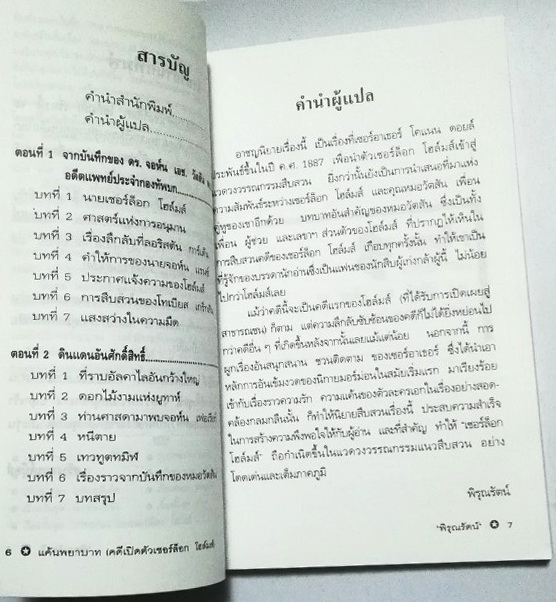 สารบัญ
คำนำสำนักพิมพ์
คำนำผู้แปล
ตอนที่ 1 จากบันทึกของ ดร. จอห์น เอช. วัตสัน
อดีตแพทย์ประจำกองทัพบก
บทที่ 1 นายเชอร์ล็อก โฮล์มส์
บทที่ 2 ศาสตร์แห่งการอนุมาน
บทที่ 3 เรื่องลึกลับที่ลอริสตัน การ์เด้น
บทที่ 4 คำให้การของนายจอห์น แรนซ์
บทที่ 5 ประกาศแจ้งความของโฮล์มส์
บทที่ 6 การสืบสวนของโทเบียส เกร็กสัน
บทที่ 7 แสงสว่างในความมืด
ตอนที่ 2 ดินแดนอันศักดิ์สิทธิ์
บทที่ 1 ที่ราบอัลคาไลอันกว้างใหญ่
บทที่ 2 ดอกไม้งามแห่งยูทาห์
บทที่ 3 ท่านศาสดามาพบจอห์น
บทที่ 4 หนีตาย
บทที่ 5 เทวทูตทมิฬ
บทที่ 6 เรื่องราวจากบันทึกของหมอวัตสัน
บทที่ 7 บทสรุป
6 ✪ แค้นพยาบาท (คดีเปิดตัวเชอร์ล็อก โฮล์มส์)
คำนำผู้แปล
อาชญนิยายเรื่องนี้ เป็นเรื่องที่เซอร์อาเธอร์ โคแนน ดอยล์
ประพันธ์ขึ้นในปี ค.ศ. 1887 เพื่อนำตัวเชอร์ล็อก โฮล์มส์เข้าสู่
แวดวงวรรณกรรมสืบสวน ยิ่งกว่านั้นยังเป็นการนำเสนอที่มาแห่ง
ความสัมพันธ์ระหว่างเชอร์ล็อก โฮล์มส์ และคุณหมอวัตสัน เพื่อน
คู่หูของเขาอีกด้วย บทบาทอันสำคัญของหมอวัตสัน ซึ่งเป็นทั้ง
เพื่อน ผู้ช่วย และเลขาฯ ส่วนตัวของโฮล์มส์ ที่ปรากฏให้เห็นใน
การสืบสวนคดีของเชอร์ล็อก โฮล์มส์ เกือบทุกครั้งนั้น ทำให้เขาเป็น
ที่รู้จักของบรรดานักอ่านซึ่งเป็นแฟนของนักสืบผู้เก่งกล้าผู้นี้ ไม่น้อย
ไปกว่าโฮล์มส์เลย
แม้ว่าคดีนี้จะเป็นคดีแรกของโฮล์มส์ (ที่ได้รับการเปิดเผยสู่
สาธารณชน) ก็ตาม แต่ความลึกลับซับซ้อนของคดีก็ไม่ได้ยิ่งหย่อนไป
กว่าคดีอื่น ๆ ที่เกิดขึ้นหลังจากนั้นเลยแม้แต่น้อย นอกจากนี้ การ
ผูกเรื่องอันสนุกสนาน ชวนติดตาม ของเซอร์อาเธอร์ ซึ่งได้นำเอา
หลักการอันเข้มงวดของนิกายมอร์มอนในสมัยเริ่มแรก มาเรียงร้อย
เข้ากับเรื่องราวความรัก ความแค้นของตัวละครเอกในเรื่องอย่างสอด-
คล้องกลมกลืนนั้น ก็ทำให้นิยายสืบสวนเรื่องนี้ ประสบความสำเร็จ
ในการสร้างความพึงพอใจให้กับผู้อ่าน และที่สำคัญ ทำให้ "เชอร์ล็อก
โฮล์มส์" ถือกำเนิดขึ้นในแวดวงวรรณกรรมแนวสืบสวน อย่าง
โดดเด่นและเต็มภาคภูมิ
พิรุณรัตน์
"พิรุณรัตน์" ✪ 7